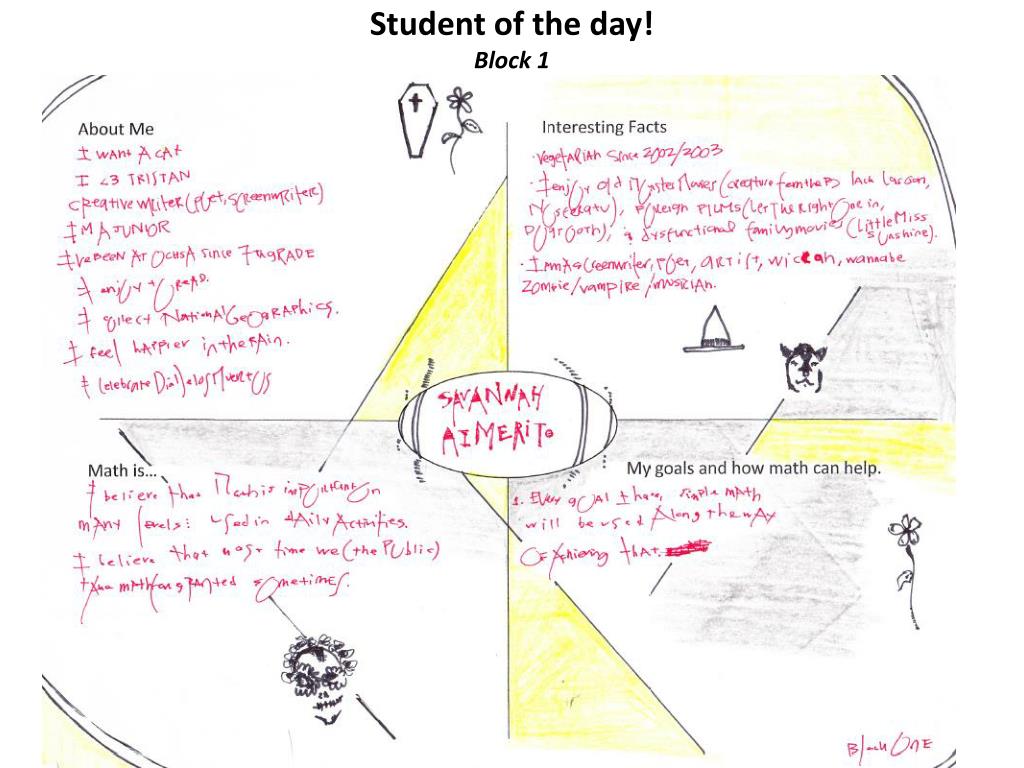 Student of the day!
Block 1
About Me
I WANT A CAT
I <3 TRISTAN
CREATIVE WRITER (POET, SCREENWRITER)
I'M A JUNIOR
I'VE BEEN AT OCHSA SINCE 7TH GRADE
I enjoy to READ.
I collect National Geographics.
I feel HAPPIER in the RAIN.
I Celebrate Dia De Los Muertos
Interesting Facts
·Vegetarian Since 2002/2003
·I enjoy old Monster Movies (creature from the Black Lagoon,
Nosferatu), Foreign FILMS (Let The Right One in,
Dogtooth), & dysfunctional family movies (Little Miss
Sunshine).
·I am A Screenwriter, Poet, ARTIST, WICCAN, wannabe
Zombie/vampire/musician.
SAVANNAH
AIMERITO
Math is...
I believe that Math is important on
many levels: Used in dAily Activities.
I believe that most time we (the Public)
take math for granted sometimes.
My goals and how math can help.
1. Every goal I have, simple math
will be used Along the way
OF Achieving that.
Block One